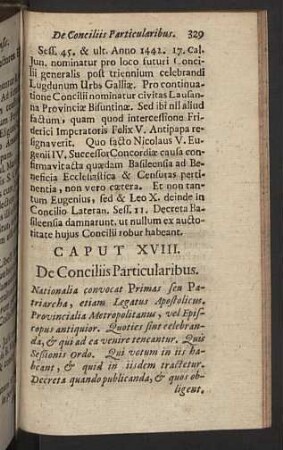 De Conciliis Particularibus. 329
Sess. 45. & ult. Anno 1442. 17. Cal.
Jun. nominatur pro loco futuri Conci-
lii generalis post triennium celebrandi
Lugdunum Urbs Galliæ. Pro continua-
tione Concilii nominatur civitas Lausan-
na Provinciæ Bisuntinæ. Sed ibi nil aliud
factum, quam quod intercessione Fri-
derici Imperatoris Felix V. Antipapa re-
signaverit. Quo facto Nicolaus V. Eu-
genii IV. Successor Concordiæ causa con-
firmavit acta quædam Basileensia ad Be-
neficia Ecclesiastica & Censuras perti-
nentia, non vero cætera. Et non tan-
tum Eugenius, sed & Leo X. deinde in
Concilio Lateran. Sess. 11. Decreta Ba-
sileensia damnarunt, ut nullum ex aucto-
ritate hujus Concilii robur habeant.
CAPUT XVIII.
De Conciliis Particularibus.
Nationalia convocat Primas seu Pa-
triarcha, etiam Legatus Apostolicus,
Provincialia Metropolitanus, vel Epis-
copus antiquior. Quoties sint celebran-
da, & qui ad ea venire teneantur. Quis
Sessionis Ordo. Qui votum in iis ha-
beant, & quid in iisdem tractetur.
Decreta quando publicanda, & quos ob-
ligent.